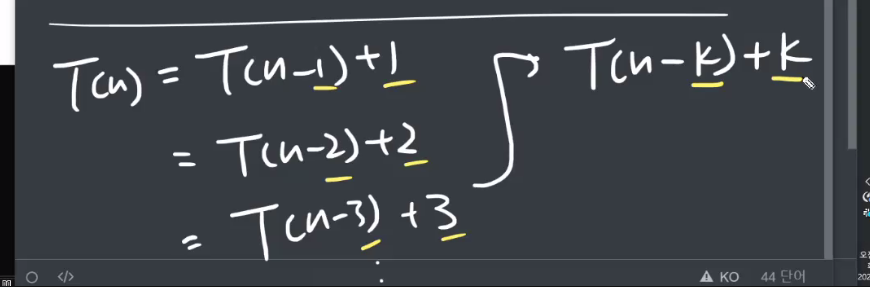 T(n) = T(n-1)+1
= T(n-2)+2
= T(n-3)+3
⋮
T(n-k)+k
</> KO 44 단어